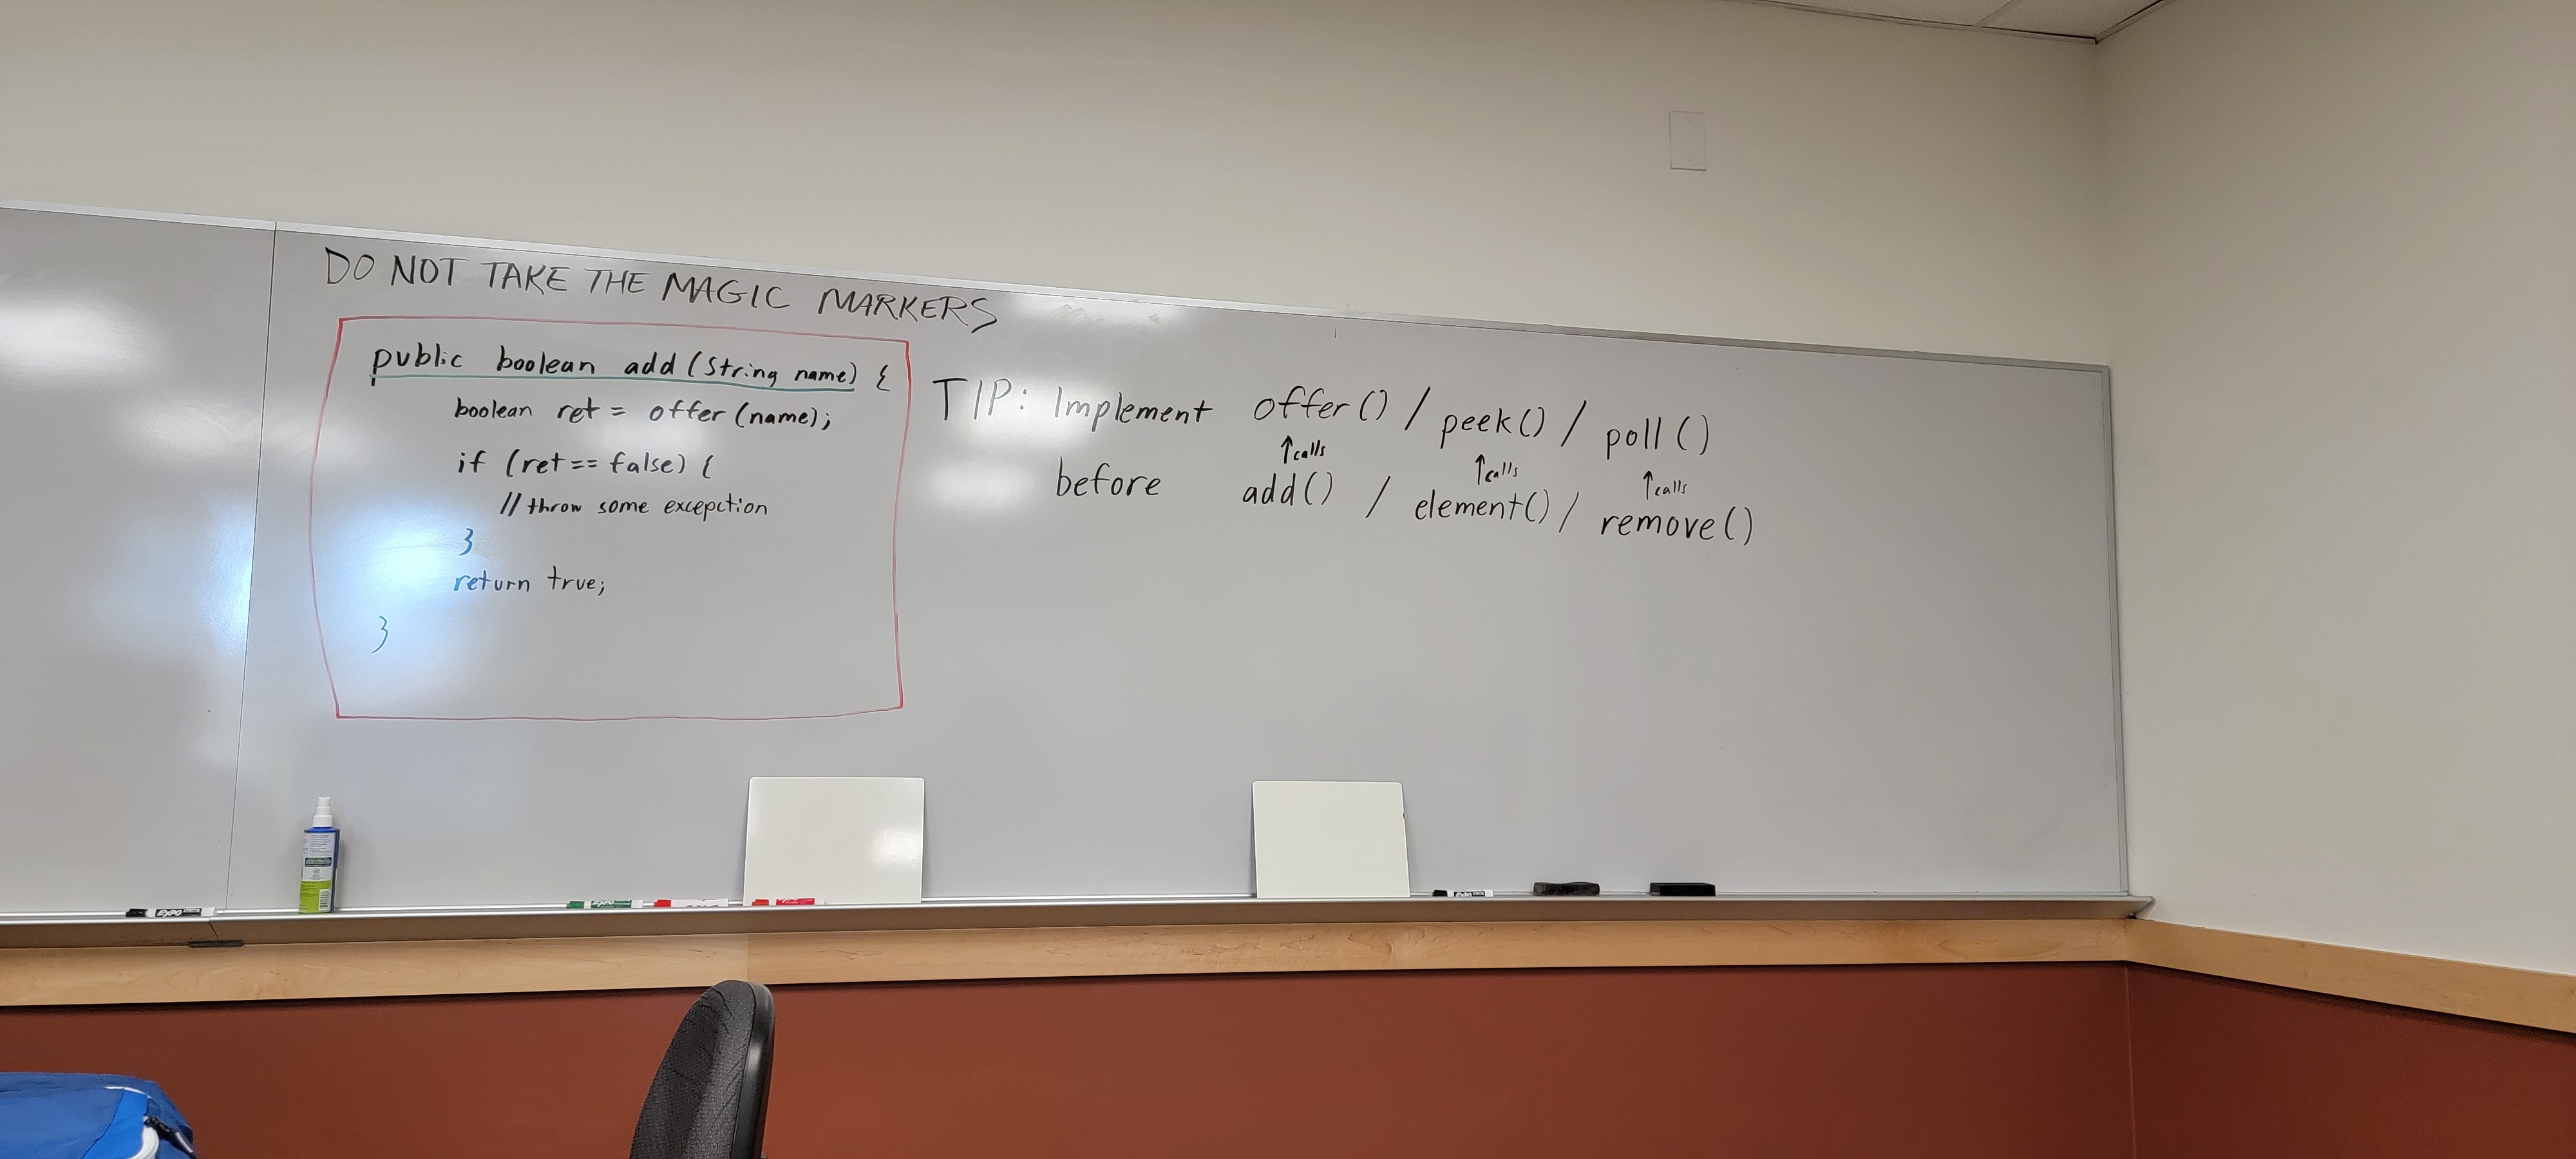 DO NOT TAKE THE MAGIC MARKERS
public boolean add (String name) {
boolean ret = offer (name);
if (ret == false) {
// throw some excepction
}
return true;
}
TIP: Implement offer() / peek() / poll()
↑calls ↑calls ↑calls
before add() / element() / remove()
EXPO
EXPO
EXPO